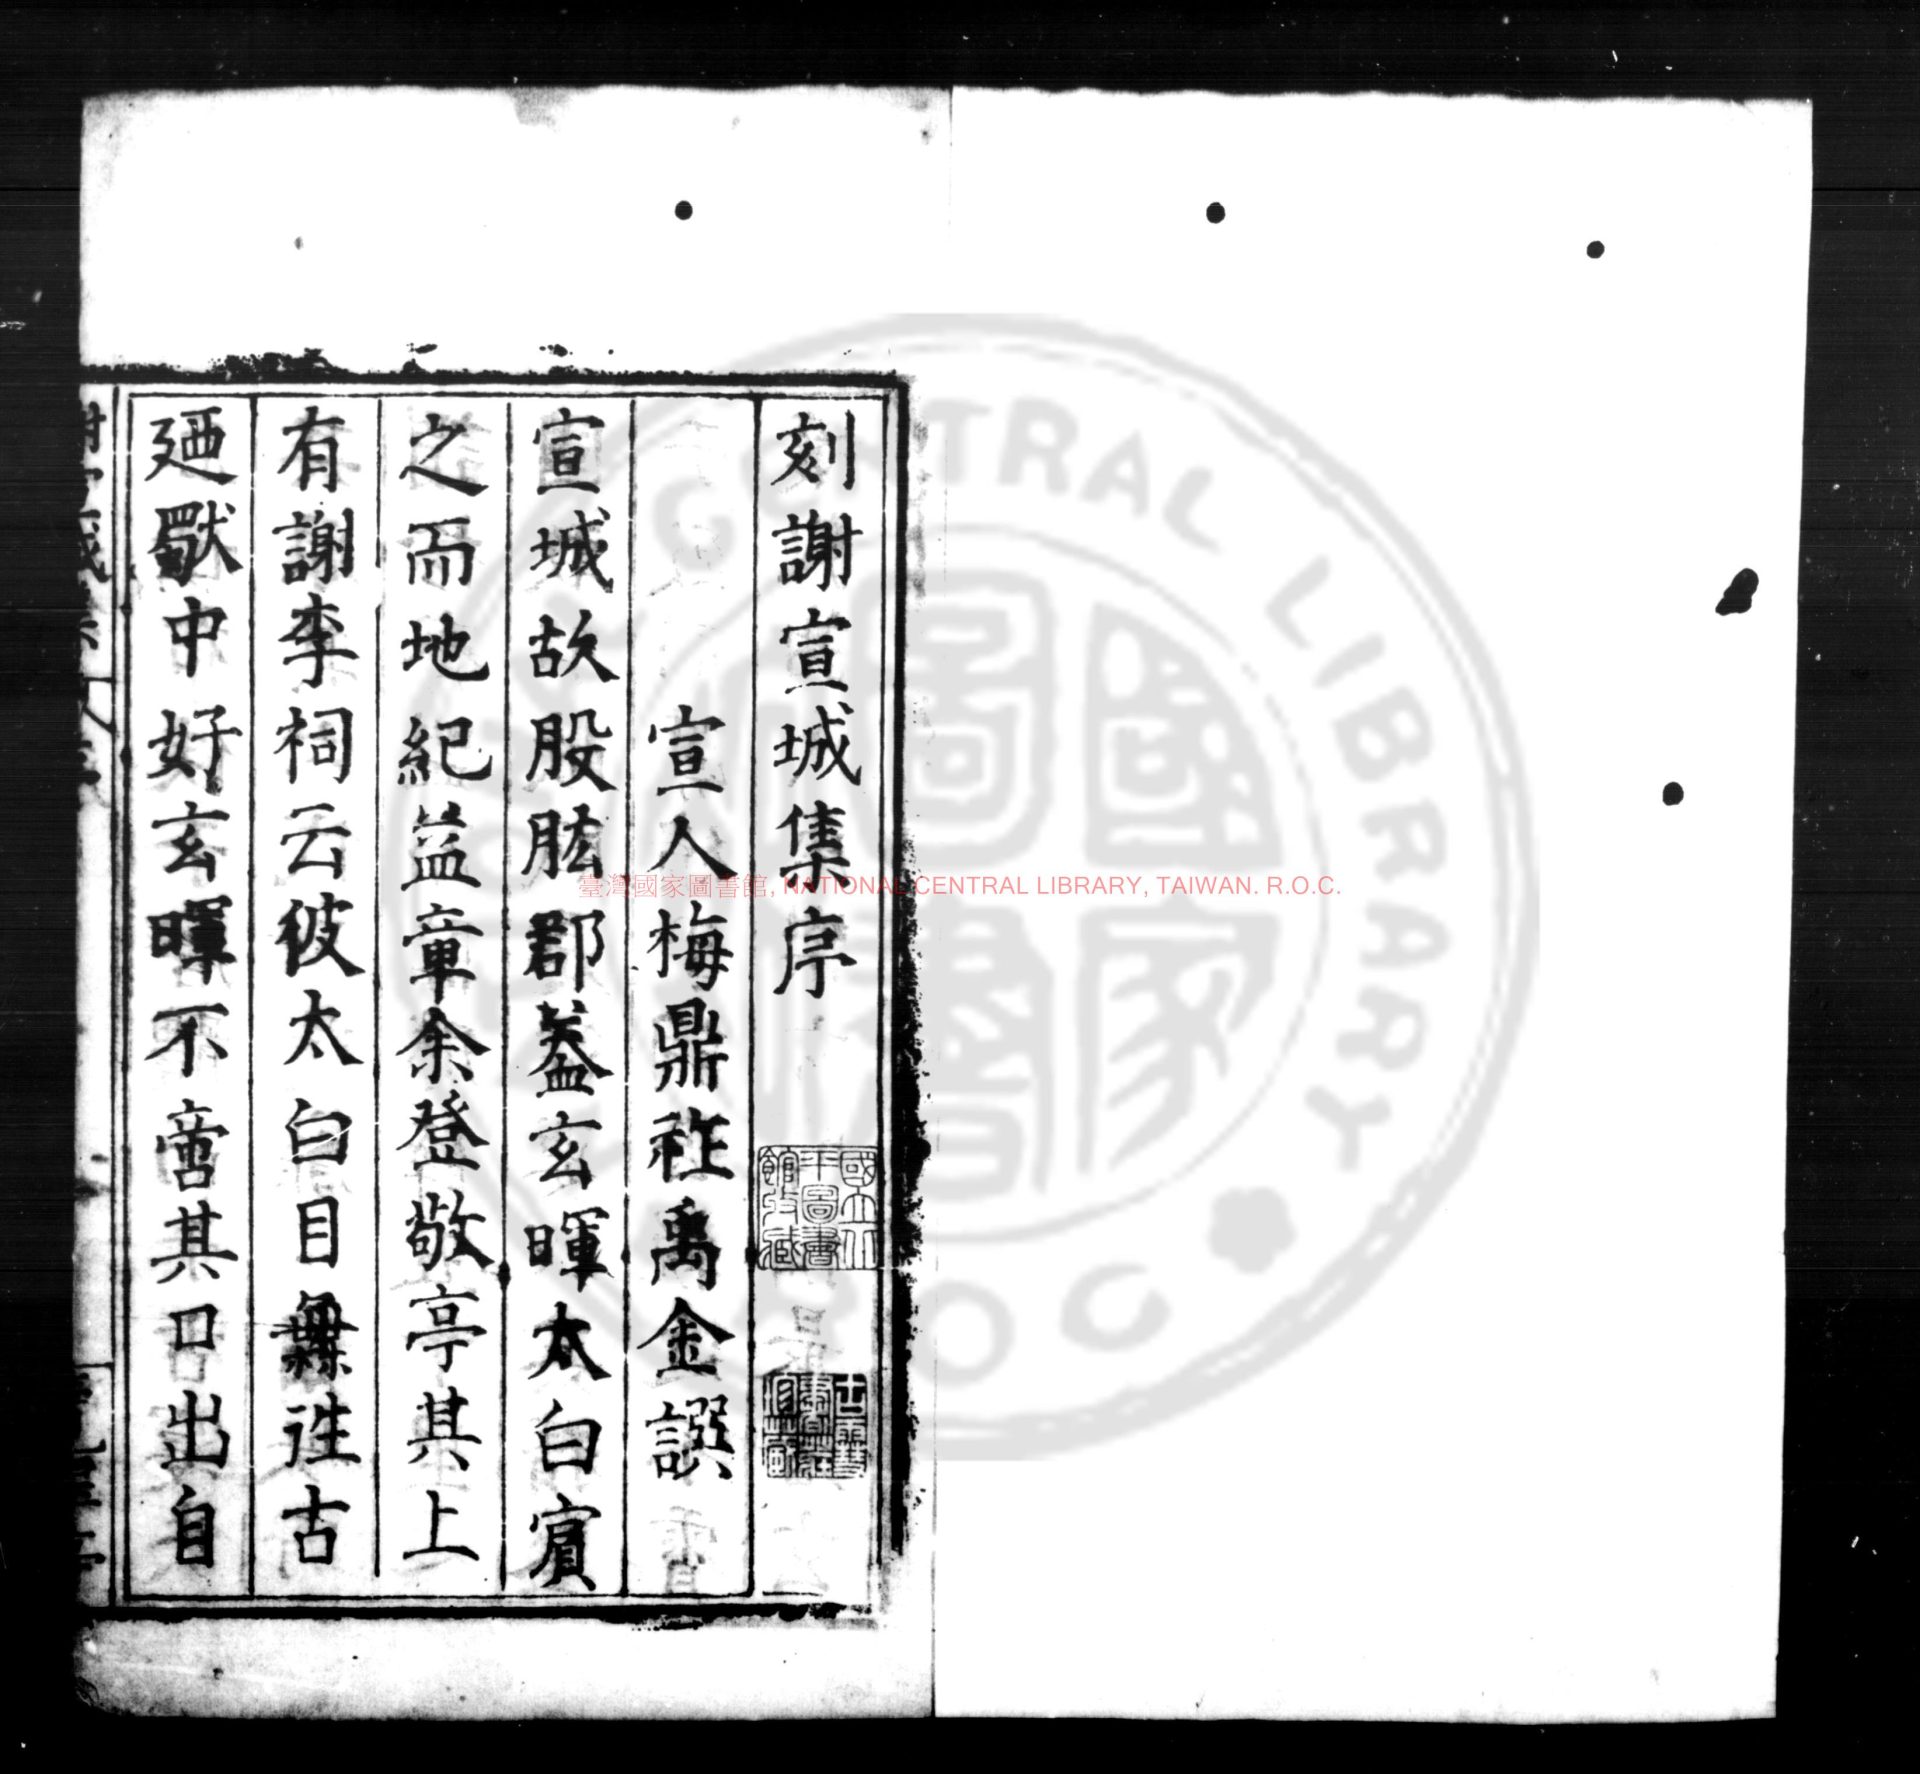 刻謝宣城集序
宣人梅鼎祚禹金譔
宣城故股肱郡葢玄暉太白賔
之而地紀益章余登敬亭其上
有謝李祠云彼太白目無徃古
廼獸中好玄暉不啻其口出自
國立北平圖書館收藏
臺灣國家圖書館, NATIONAL CENTRAL LIBRARY, TAIWAN. R.O.C.
國家圖書
CENTRAL LIBRARY
R.O.C